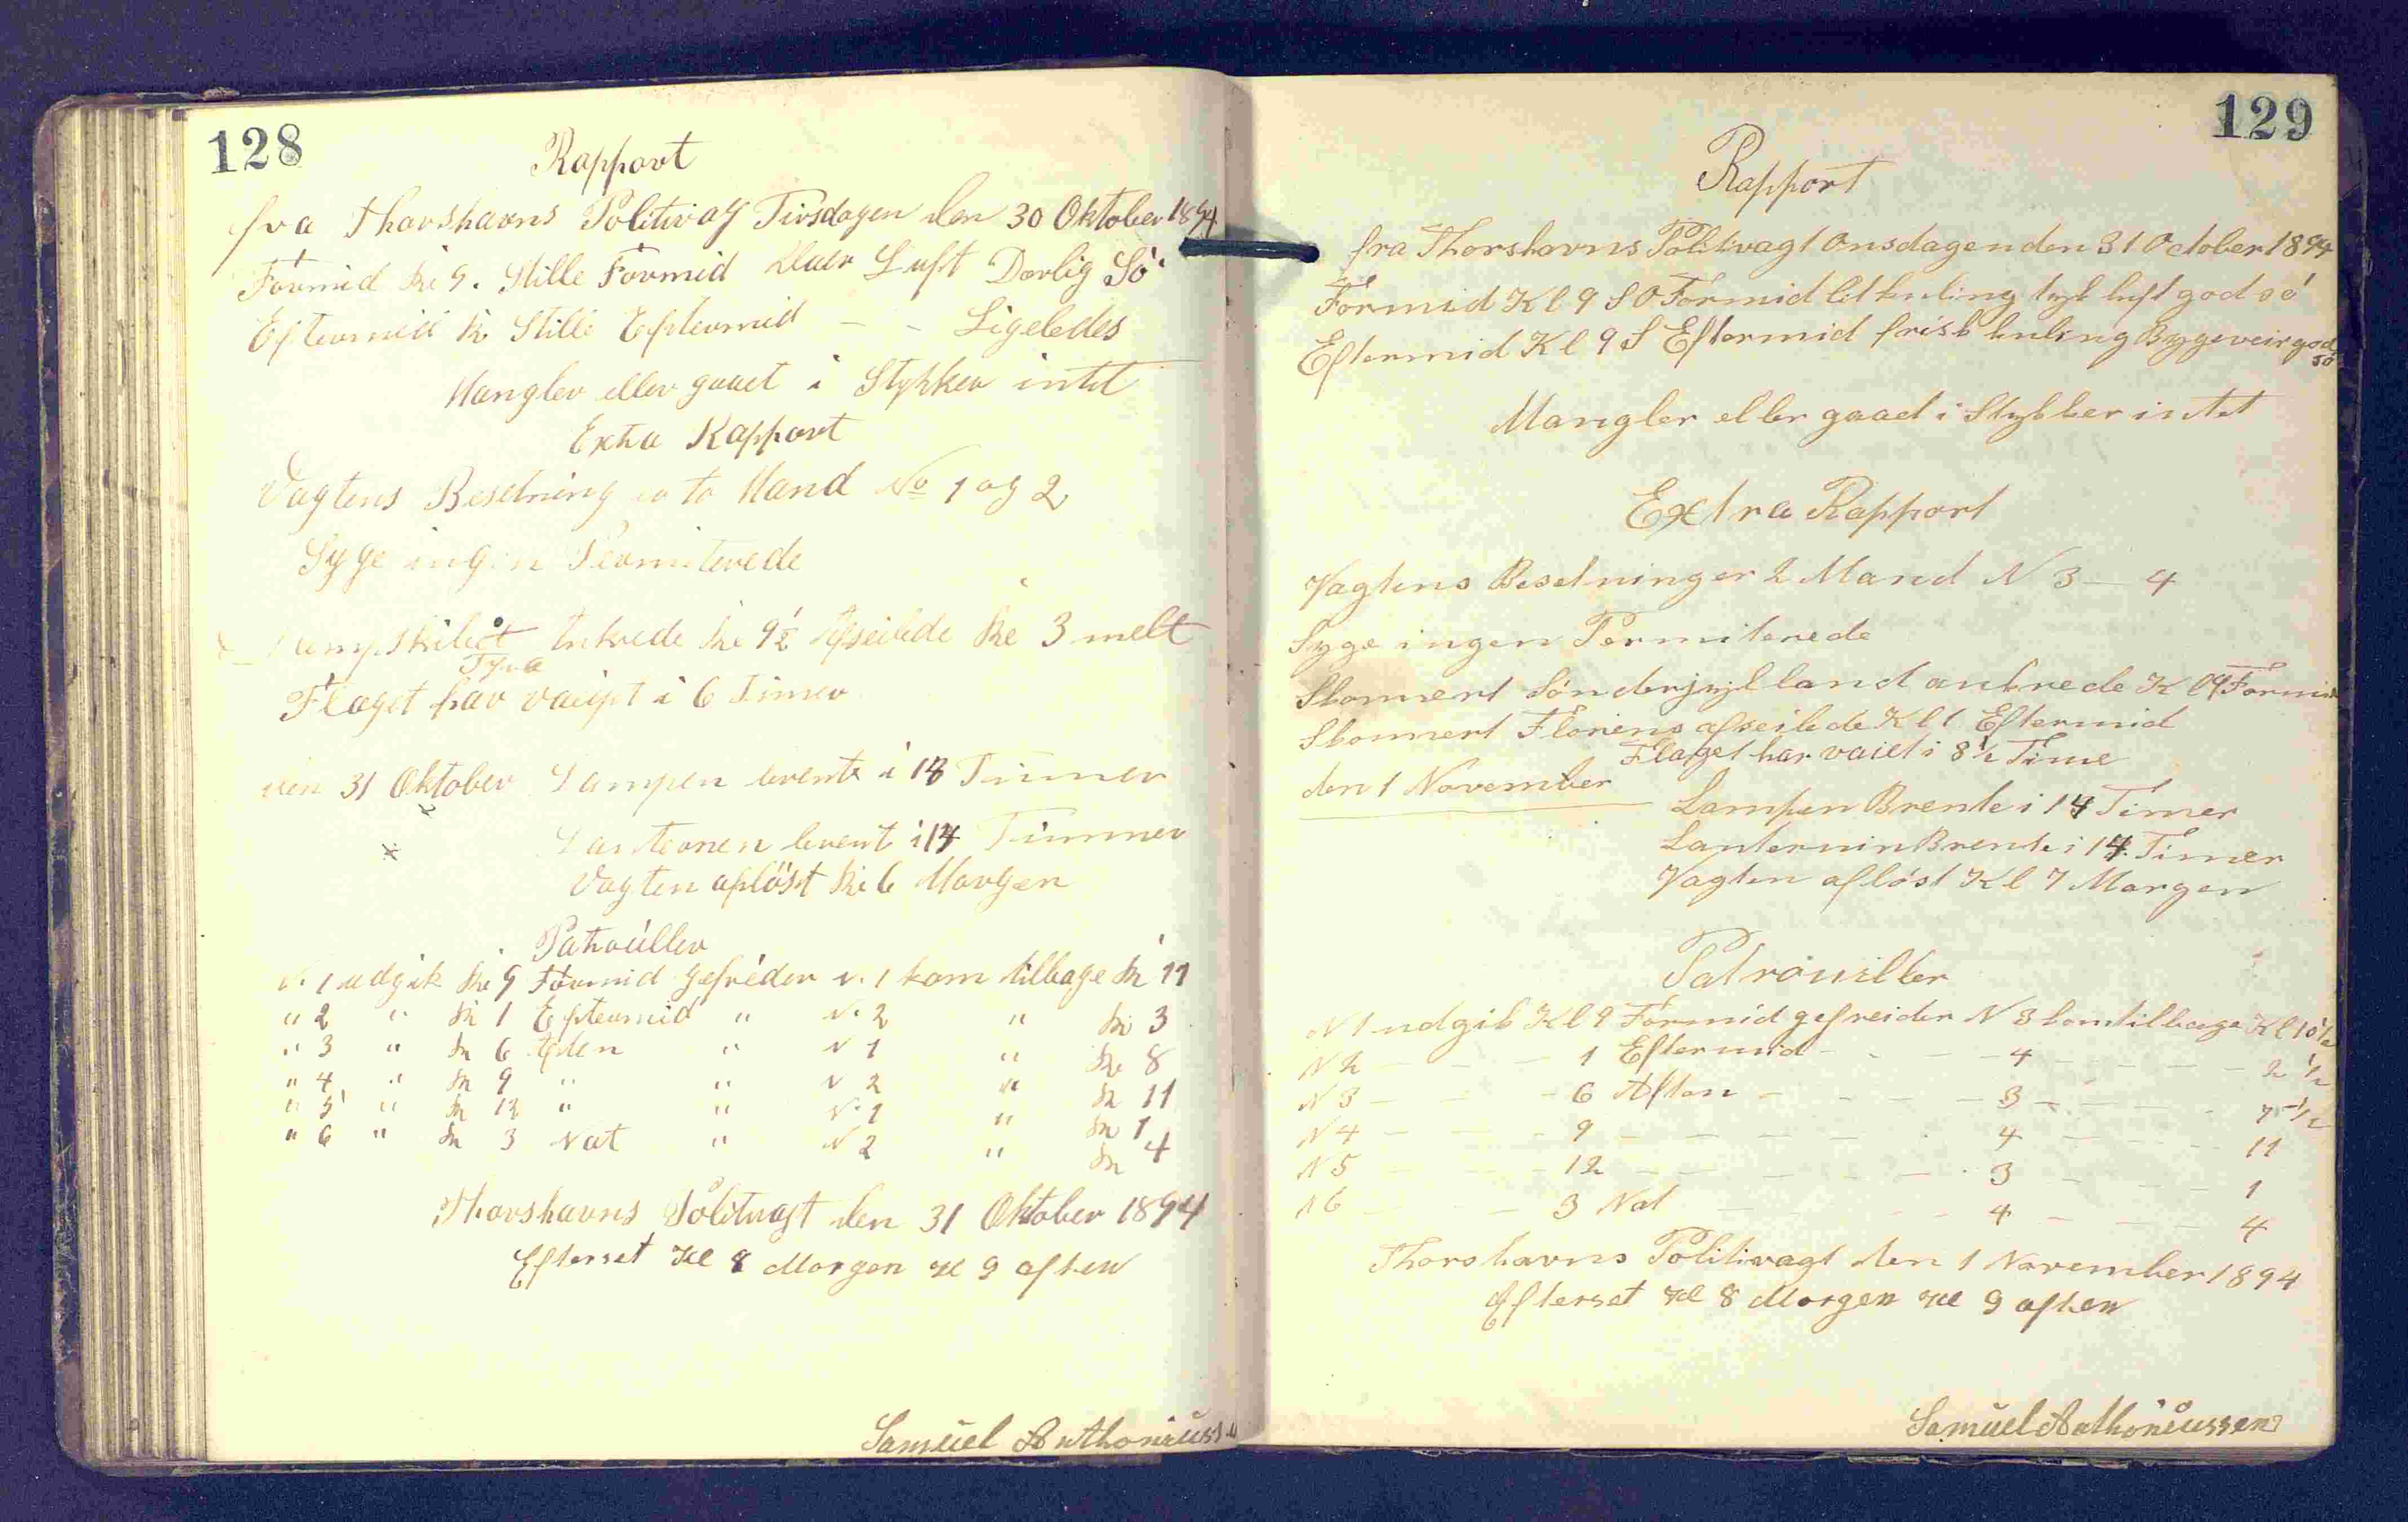 128
Rapport
fra Thorshavns Politivagt Tirsdagen den 30 Oktober 1894
Formid Kl 9. Stille Formid Klar Luft Dorlig Sö
Eftermid Kl Stille Eftermid – – Ligeledes
Mangler eller gaaet i Stykker intet
Extra Rapport
Vagtens Besetning er to Mand No 1 og 2
Syge ingen Permiterede
Dampskibet Tyra Inkrede Kl 9½ Afseilede Kl 3 melt
Flaget har vaiet i 6 Timer
den 31 Oktober Lampen brente i 13 Timmer
Lanternen brent i 14 Timmer
Vagten aflöst Kl 6 Morgen
Patrouller
N. 1 udgik Kl 9 Formid gefreider N. 1 kom tilbage Kl 11
" 2 " Kl 1 Eftermid " N. 2 " Kl 3
" 3 " Kl 6 Aften " N 1 " Kl 8
" 4 " Kl 9 " " N 2 " Kl 11
" 5 " Kl 12 " " N. 1 " Kl 1
" 6 " Kl 3 Nat " N 2 " Kl 4
Thorshavns Politivagt den 31 Oktober 1894
Efterset Kl 8 Morgen Kl 9 aften
Samuel Anthoniuss
129
Rapport
fra Thorshavns Politivagt Onsdagen den 31 October 1894
Formid Kl 9 SO Formid lit kuling tyk luft god sö
Eftermid Kl 9 S Eftermid frisk kuling Bygeveir god sö
Mangler eller gaad i Stykker intet
Extra Rapport
Vagtens Besetning er 2 Mand N 3 – 4
Syge ingen Permiterede
Skonnert Sönderjylland ankrede Kl 9 Formid
Skonnert Floriens afseilede Kl 1 Eftermid
Flaget har vaiet i 8½ Time
den 1 November
Lampen Brente i 14 Timer
Lanternin Brente i 14 Timer
Vagten aflöst Kl 7 Morgen
Patrouiller
N 1 udgik Kl 9 Formid gefreider N 3 kom tilbage Kl 10½
N 2 – – – 1 Eftermid – – – 4 – – – 2½
N 3 – – – 6 Aften – – – 3 – – – 7½
N 4 – – – 9 – – – 4 – – – 11
N 5 – – – 12 – – – 3 – – – 1
N 6 – – – 3 Nat – – – 4 – – – 4
Thorshavns Politivagt den 1 November 1894
Efterset Kl 8 Morgen Kl 9 aften
Samuel Anthoniussen